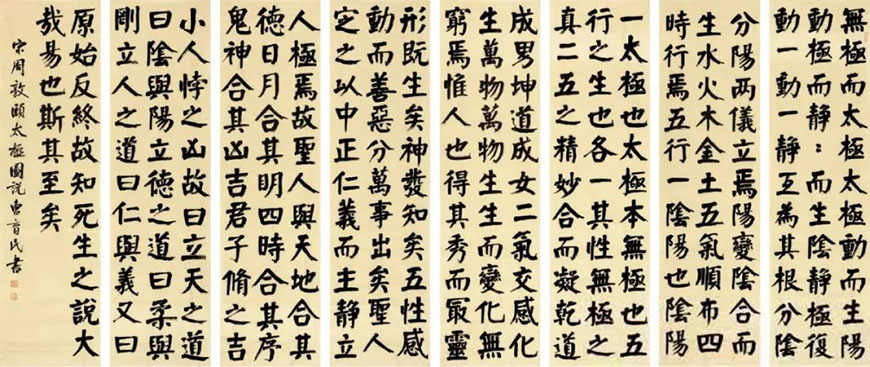 無極而太極太極動而生陽
動極而靜：而生陰靜極復
動一動一靜互為其根分陰
分陽兩儀立焉陽變陰合而
生水火木金土五氣順布四
時行焉五行一陰陽也陰陽
一太極也太極本無極也五
行之生也各一其性無極之
真二五之精妙合而凝乾道
成男坤道成女二氣交感化
生萬物萬物生生而變化無
窮焉惟人也得其秀而冣靈
形既生矣神發知矣五性感
動而善惡分萬事出矣聖人
定之以中正仁義而主靜立
人極焉故聖人與天地合其
德日月合其明四時合其序
鬼神合其凶吉君子脩之吉
小人悖之凶故曰立天之道
曰陰與陽立德之道曰柔與
剛立人之道曰仁與義又曰
原始反終故知死生之說大
哉易也斯其至矣
宋周敦頤太極圖說曹育民書